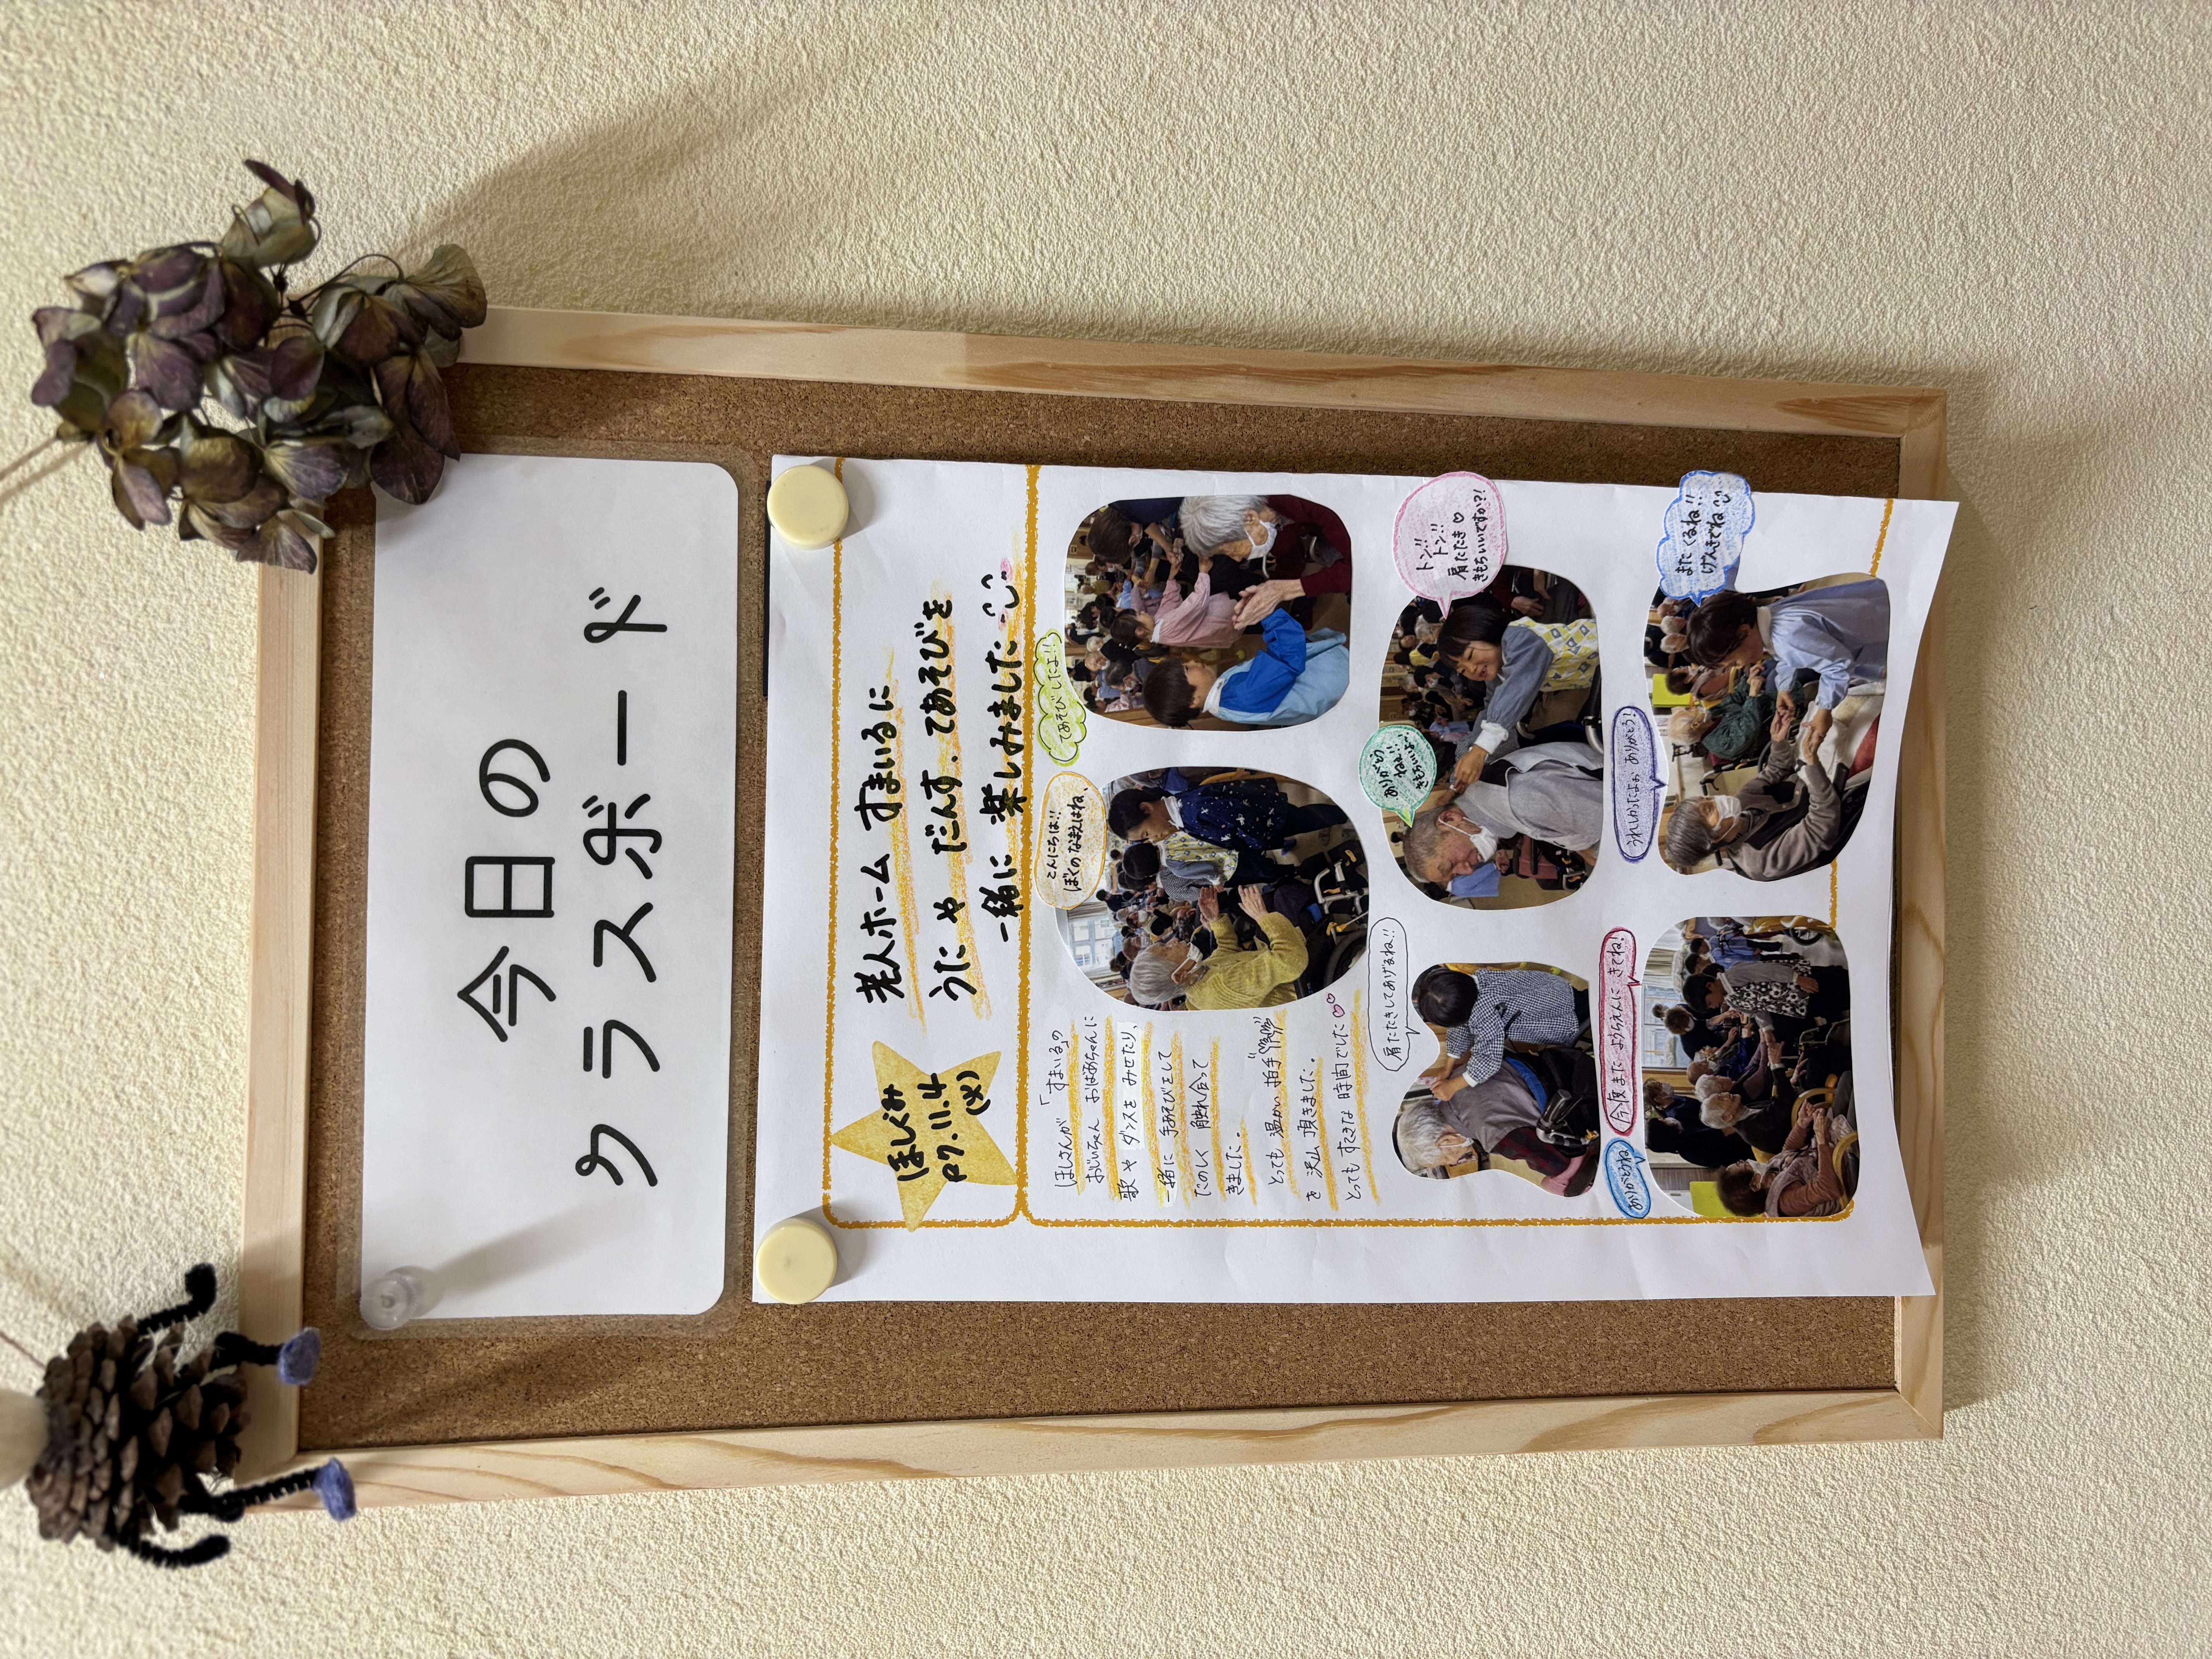 今日の
クラスボード
ほしぐみ
R7.11.4
(火)
老人ホーム すまいるに
うたや だんす、てあそびを
一緒に 楽しみました
ほしさんが 「すまいる」の
おじいちゃん おばあちゃんに
歌や ダンスを みせたり、
一緒に 手あそびをして
たのしく 触れ合って
きました。
とっても 温かい 拍手
を 沢山 頂きました。
とっても すてきな 時間でした♡♡
こんにちは!!
ぼくのなまえはね、
てあそびしたよ!!
肩たたきしてあげるね!!
ありがとう
ねぇ!!
きもちいいよ〜
トン!!
トン!!
肩たたき♡
きもちいいですか?!
ありがとうね!
今度また ようちえんに きてね!
うれしかったよぉ ありがとう!
また くるね!!
げんきでね